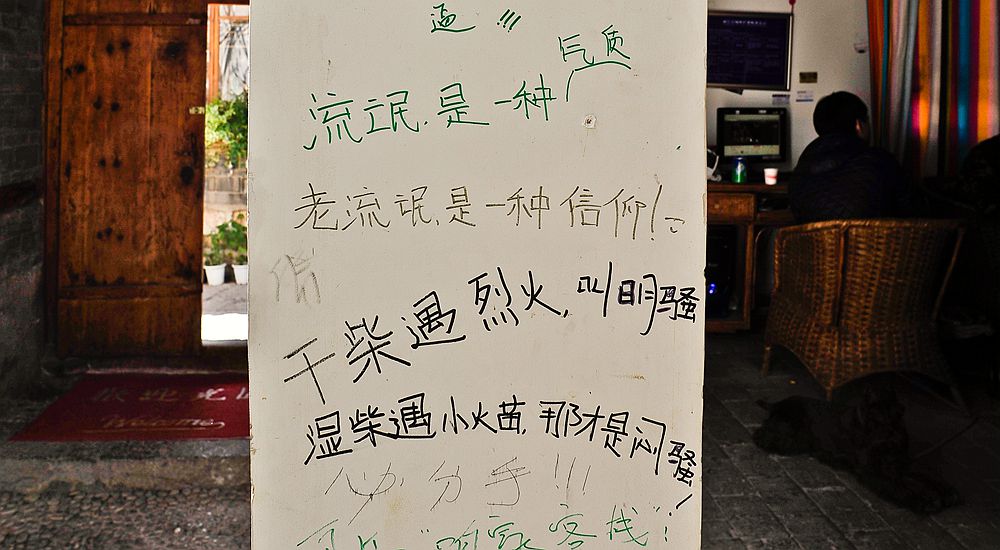 逼 !!!
流氓.是一种气质
老流氓.是一种信仰!
干柴遇烈火,叫明骚
湿柴遇小火苗,那才是闷骚!
分手!!!
客栈"!
欢迎光临
Welcome